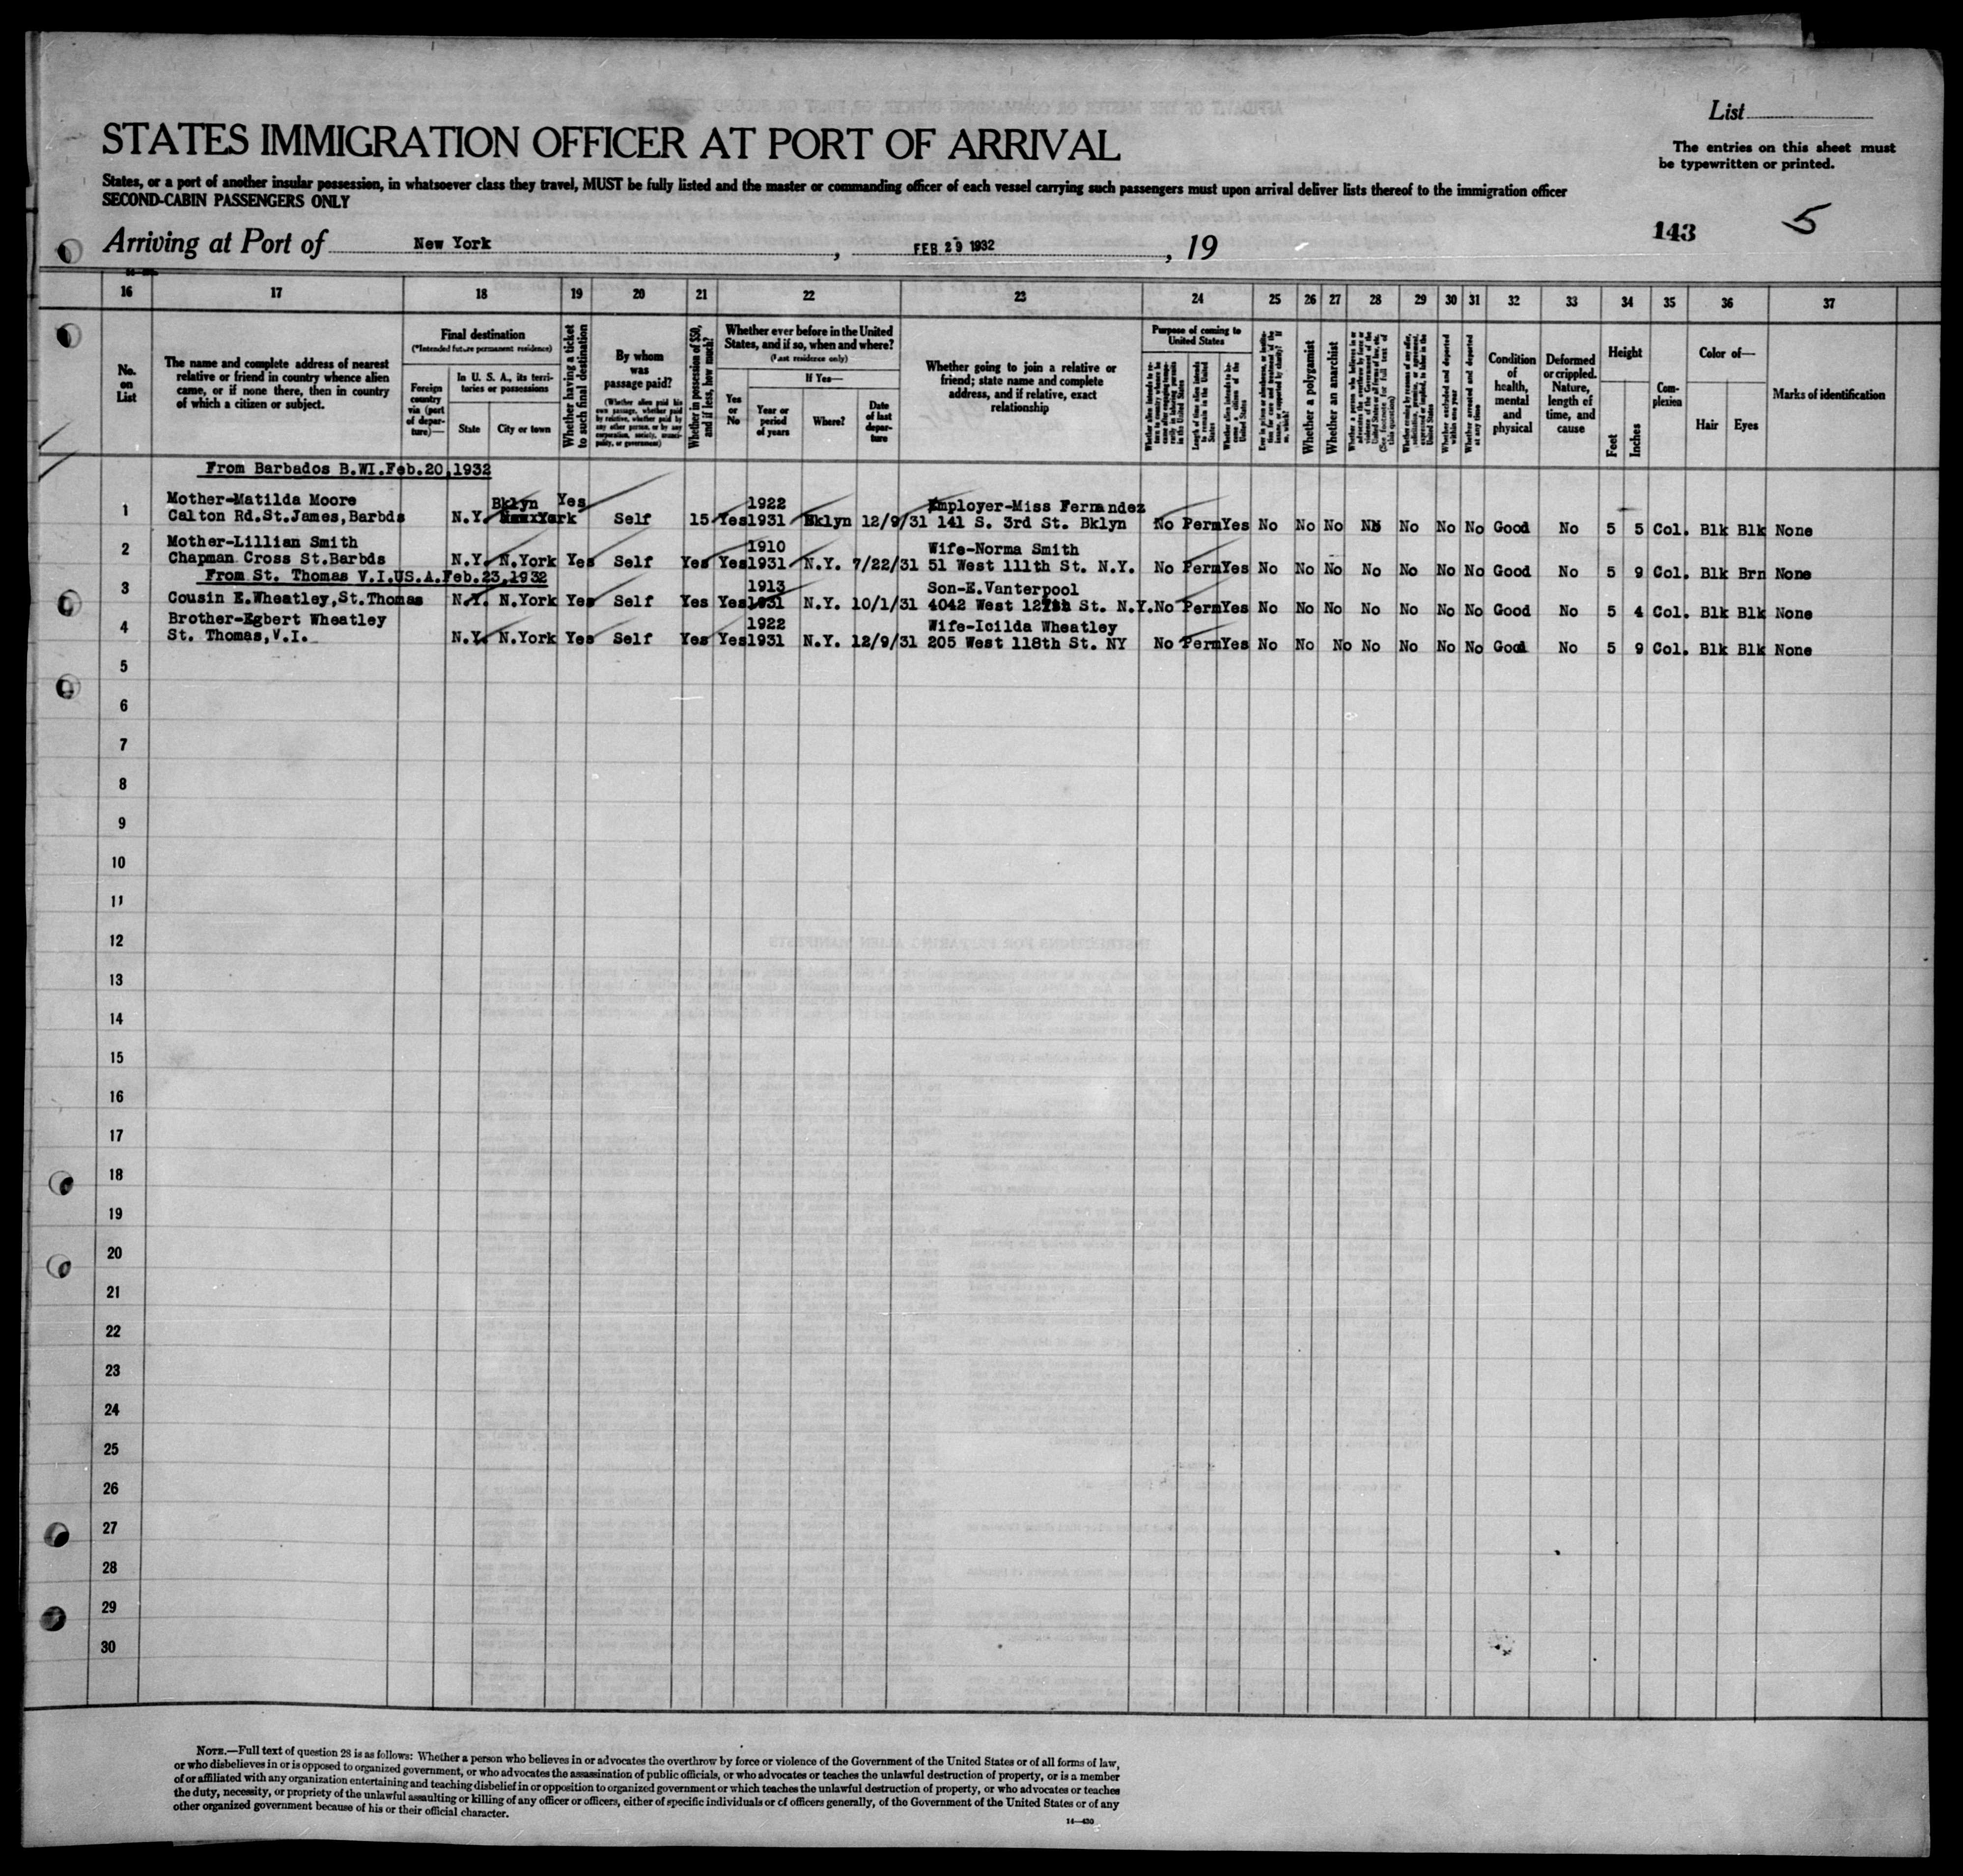 List
STATES IMMIGRATION OFFICER AT PORT OF ARRIVAL
The entries on this sheet must
be typewritten or printed.
States, or a port of another insular possession, in whatsoever class they travel, MUST be fully listed and the master or commanding officer of each vessel carrying such passengers must upon arrival deliver lists thereof to the immigration officer
SECOND-CABIN PASSENGERS ONLY
143 5
Arriving at Port of New York, FEB 29 1932, 19
16 17 18 19 20 21 22 23 24 25 26 27 28 29 30 31 32 33 34 35 36 37
No.
on
List
The name and complete address of nearest
relative or friend in country whence alien
came, or if none there, then in country
of which a citizen or subject.
Final destination
(*Intended future permanent residence)
Foreign
country
via (port
of depar-
ture)—
In U. S. A., its terri-
tories or possessions
State
City or town
Whether having a ticket
to such final destination
By whom
was
passage paid?
(Whether alien paid his
own passage, whether paid
by relative, whether paid by
any other person, or by any
corporation, society, munici-
pality, or government)
Whether in possession of $50,
and if less, how much?
Whether ever before in the United
States, and if so, when and where?
(Last residence only)
Yes
or
No
If Yes—
Year or
period
of years
Where?
Date
of last
depar-
ture
Whether going to join a relative or
friend; state name and complete
address, and if relative, exact
relationship
Purpose of coming to
United States
Length of time alien intends
to remain in the United
States
Whether alien intends to be-
come a citizen of the
United States
Whether a polygamist
Whether an anarchist
Whether excluded and deported
within one year
Whether arrested and deported
at any time
Condition
of
health,
mental
and
physical
Deformed
or crippled.
Nature,
length of
time, and
cause
Height
Feet
Inches
Com-
plexion
Color of—
Hair
Eyes
Marks of identification
From Barbados B.WI.Feb.20,1932
Mother-Matilda Moore Bklyn Yes 1922 Employer-Miss Fernandez
1 Calton Rd.St.James,Barbds N.Y. Self 15 Yes 1931 Bklyn 12/9/31 141 S. 3rd St. Bklyn No Perm Yes No No No No No No No Good No 5 5 Col. Blk Blk None
Mother-Lillian Smith 1910 Wife-Norma Smith
2 Chapman Cross St.Barbds N.Y. N.York Yes Self Yes Yes 1931 N.Y. 7/22/31 51 West 111th St. N.Y. No Perm Yes No No No No No No No Good No 5 9 Col. Blk Brn None
From St. Thomas V.I.US.A.Feb.23,1932
1913 Son-E.Vanterpool
3 Cousin E.Wheatley,St.Thomas N.Y. N.York Yes Self Yes Yes 1931 N.Y. 10/1/31 4042 West St. N.Y. No Perm Yes No No No No No No No Good No 5 4 Col. Blk Blk None
Brother-Egbert Wheatley 1922 Wife-Icilda Wheatley
4 St. Thomas,V.I. N.Y. N.York Yes Self Yes Yes 1931 N.Y. 12/9/31 205 West 118th St. NY No Perm Yes No No No No No No No Good No 5 9 Col. Blk Blk None
5
6
7
8
9
10
11
12
13
14
15
16
17
18
19
20
21
22
23
24
25
26
27
28
29
30
NOTE.—Full text of question 28 is as follows: Whether a person who believes in or advocates the overthrow by force or violence of the Government of the United States or of all forms of law,
or who disbelieves in or is opposed to organized government, or who advocates the assassination of public officials, or who advocates or teaches the unlawful destruction of property, or is a member
of or affiliated with any organization entertaining and teaching disbelief in or opposition to organized government or which teaches the unlawful destruction of property, or who advocates or teaches
the duty, necessity, or propriety of the unlawful assaulting or killing of any officer or officers, either of specific individuals or of officers generally, of the Government of the United States or of any
other organized government because of his or their official character.
14—430